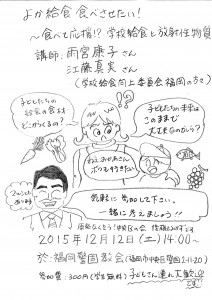 よか給食 食べさせたい!
〜食べて応援!? 学校給食と放射性物質
講師: 雨宮康子さん
江藤真実さん
(学校給食向上委員会福岡のうさ)
子どもたちの
給食の食材
どこからくるの?
子どもたちの未来は
このままで
大丈夫なのかしら?
ねえ、おかあさん
ボクも行きたい
気軽に参加して下さい。
一緒に考えましょう!!
2015年12月12日(土)14:00〜
於: 福岡警固教会(福岡市中央区警固2-11-20)
参加費: 300円(学生無料) 子どもさん連れ大歓迎